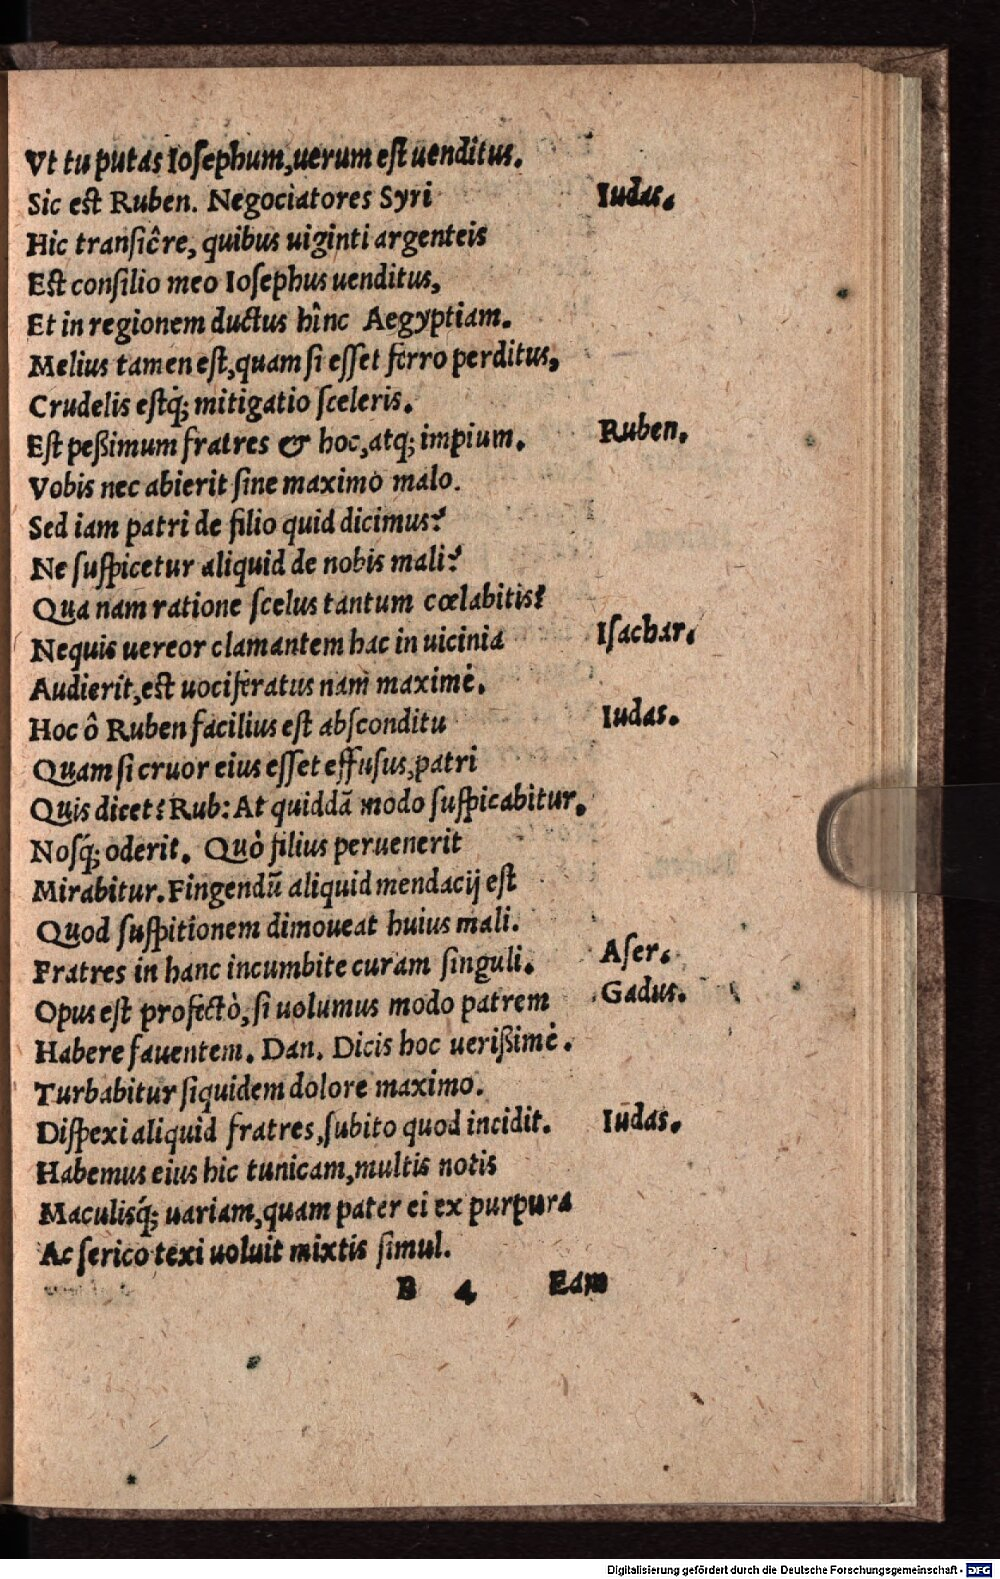 Vt tu putas Ioſephum, uerum eſt uenditus.
Sic eſt Ruben. Negociatores Syri Iudas.
Hic tranſiêre, quibus uiginti argenteis
Eſt conſilio meo Ioſephus uenditus,
Et in regionem ductus hînc Aegyptiam.
Melius tamen eſt, quam ſi eſſet ferro perditus,
Crudelis eſtq́; mitigatio ſceleris.
Eſt peßimum fratres & hoc, atq; impium. Ruben.
Vobis nec abierit ſine maximo malo.
Sed iam patri de filio quid dicimus?
Ne ſuſpicetur aliquid de nobis mali?
Qua nam ratione ſcelus tantum cœlabitis?
Nequis uereor clamantem hac in uicinia Iſachar.
Audierit, eſt uociferatus nam maximè.
Hoc ô Ruben facilius eſt abſconditu Iudas.
Quam ſi cruor eius eſſet effuſus, patri
Quis dicet? Rub: At quiddā modo ſuſpicabitur.
Noſq́; oderit. Quò filius peruenerit
Mirabitur. Fingendū aliquid mendacij eſt
Quod ſuſpitionem dimoueat huius mali.
Fratres in hanc incumbite curam ſinguli. Aſer.
Opus eſt profectò, ſi uolumus modo patrem Gadus.
Habere fauentem. Dan. Dicis hoc uerißimè.
Turbabitur ſiquidem dolore maximo.
Diſpexi aliquid fratres, ſubito quod incidit. Iudas.
Habemus eius hic tunicam, multis notis
Maculisq́; uariam, quam pater ei ex purpura
Ac ſerico texi uoluit mixtis ſimul.
B 4 Eam
Digitalisierung gefördert durch die Deutsche Forschungsgemeinschaft - DFG